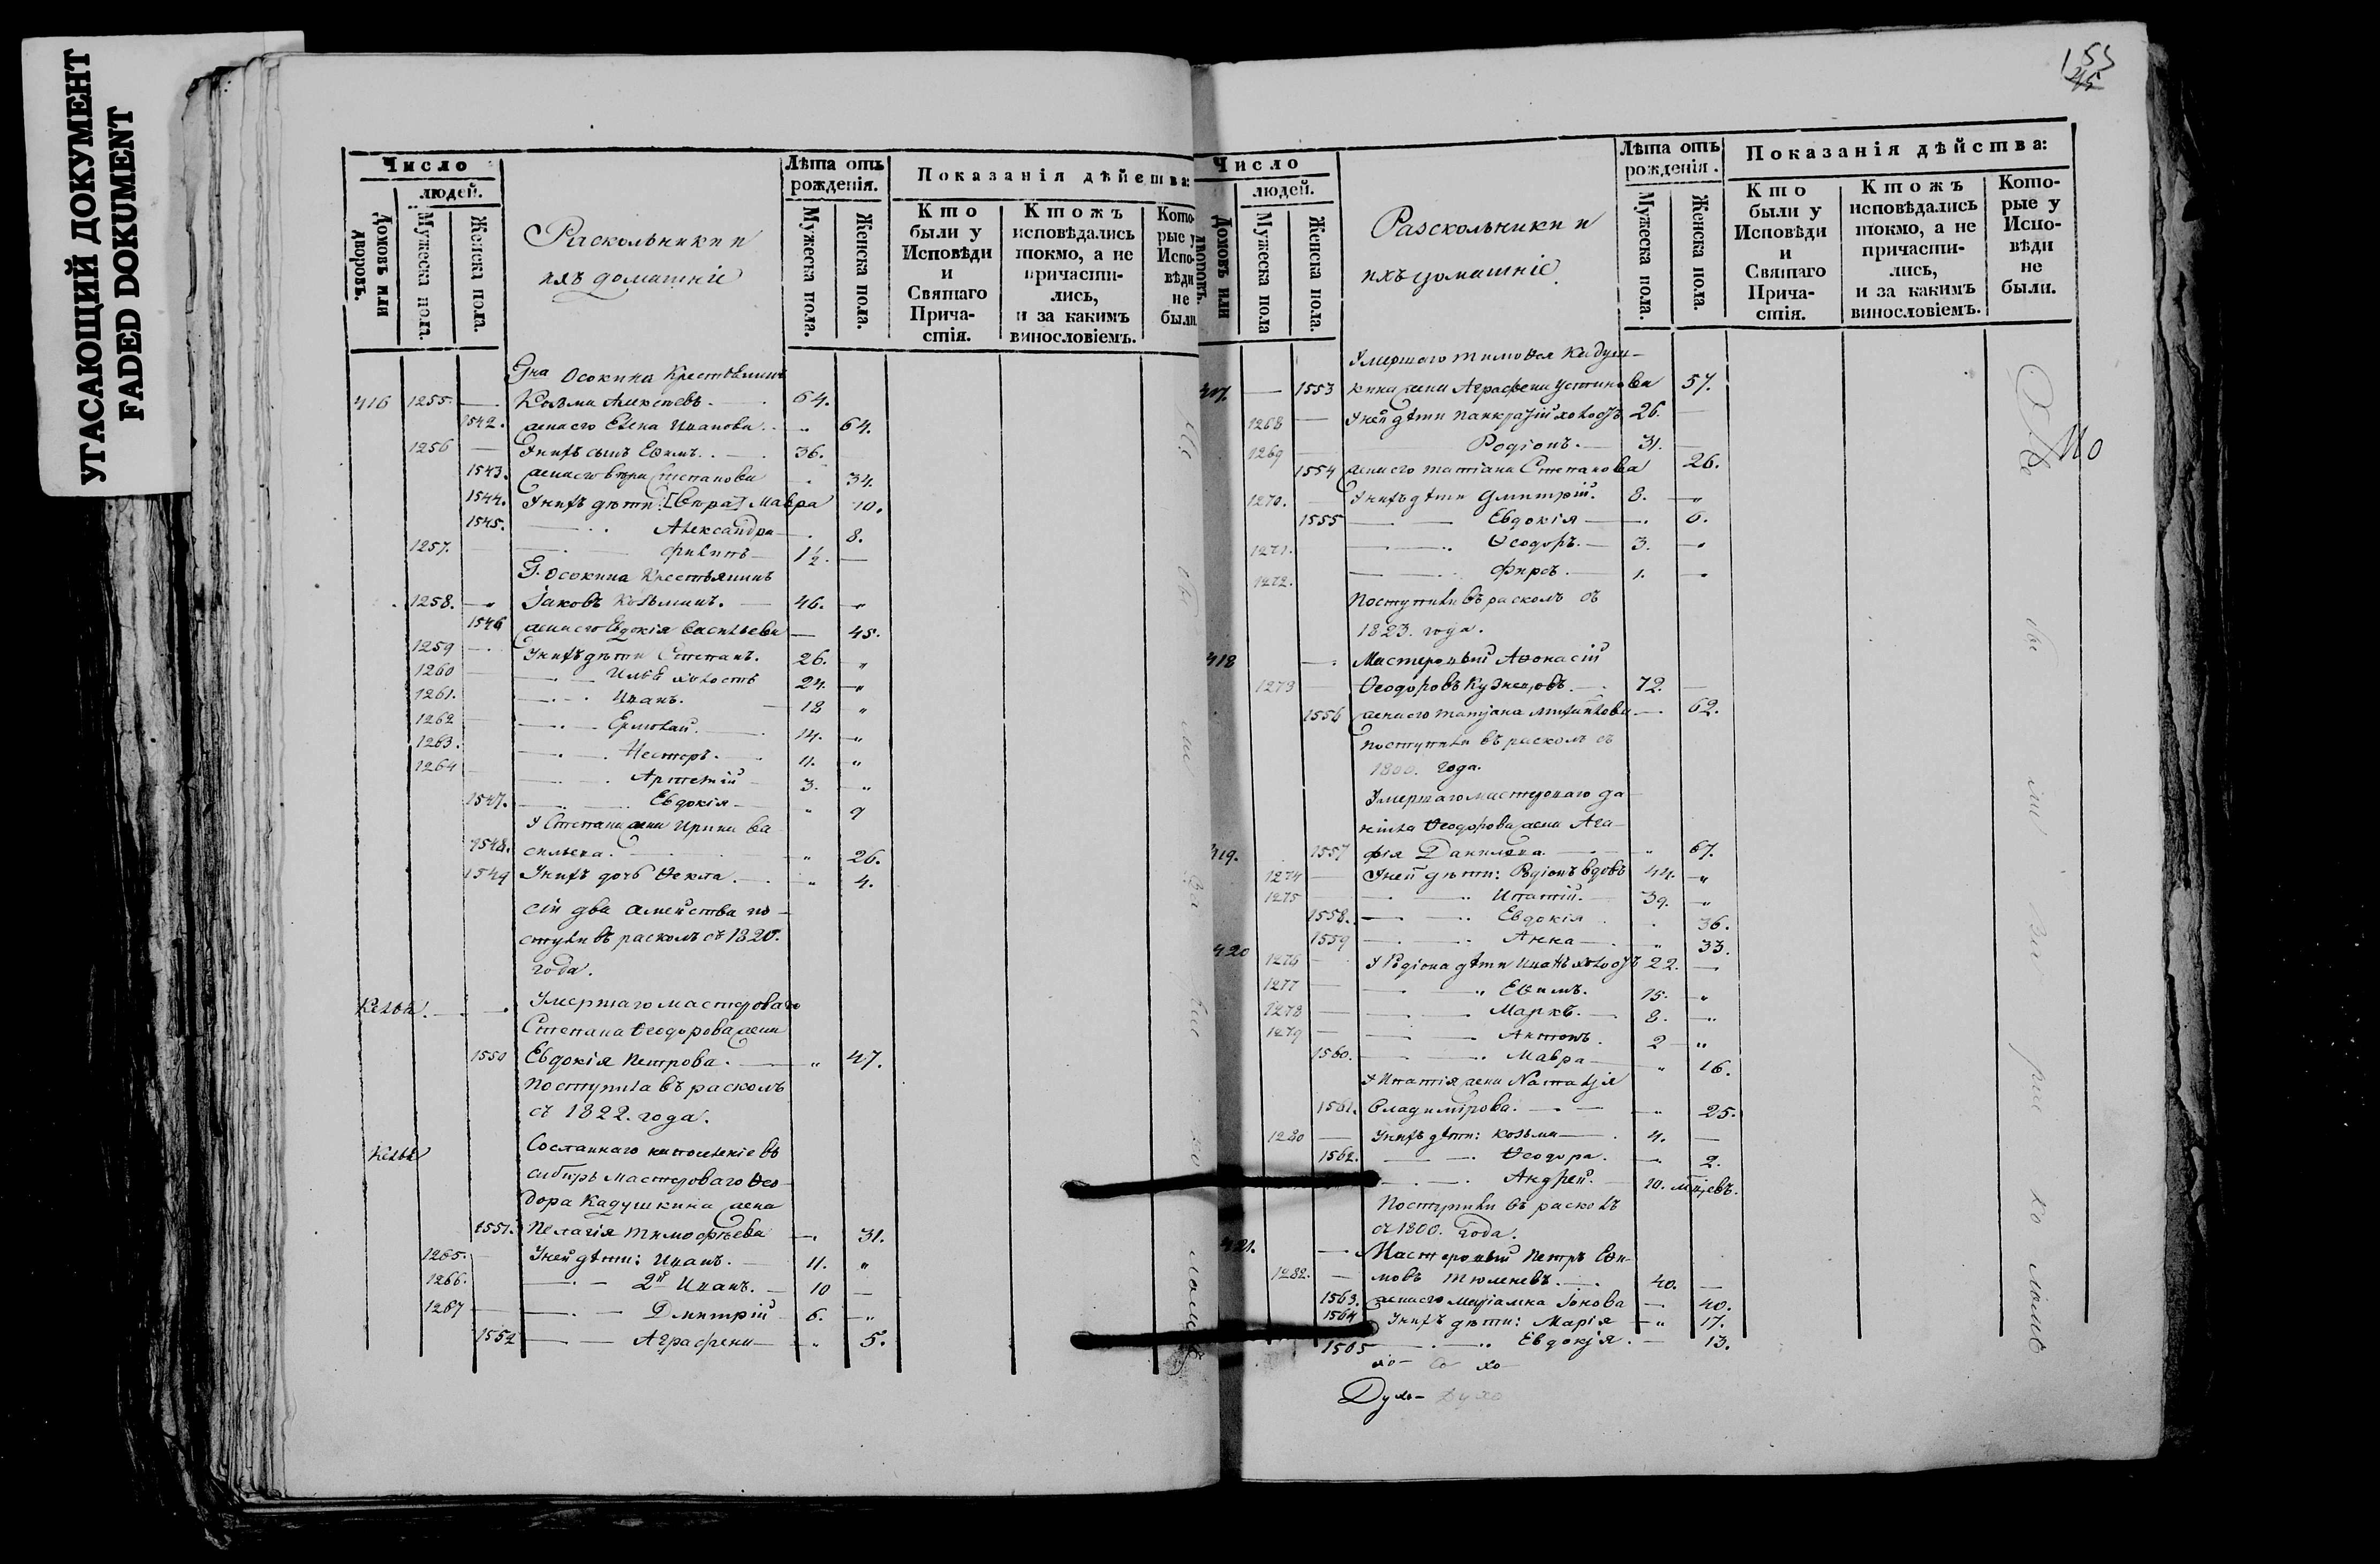 УТАСАЮЩИЙ ДОКУМЕНТ
FADED DOKUMENT
Число
людей.
Домовъ или дворовъ.
Мужеска пола.
Женска пола.
Раскольники и
ихъ домашніе
Лѣта отъ рожденія.
Мужеска пола.
Женска пола.
Показанія дѣйства:
Кто были у Исповѣди и Святаго Прича-стія.
Ктожъ исповѣдались токмо, а не причасти-лись, и за какимъ винословіемъ.
Кото-рые у Испо-вѣди не были.
Гна Осокина Крестьянинъ
416 1255. — Козьма Алексеевъ. — 64.
1542. жена его Елена Иванова. „ 64.
1256 — У нихъ сынъ Еѳимъ. — 36.
1543. жена его Вѣра Степанова 34.
1544. У нихъ дѣти: [Вѣра] Мавра 10.
1545. Александра — 8.
1257. Филипъ — 1½. —
Г. Осокина Крестьянинъ
1258. — Іаковъ Козьминъ. — 46. „
1546 жена его Евдокія Васильева — 45.
1259 У нихъ дѣти Степанъ. 26. „
1260 Илья холостъ 24. „
1261. Иванъ. 18 „
1262 Ермолай. 14. „
1263. Несторъ. 11. „
1264 Артемій 3. „
1547. Евдокія — „ 9
У Степана жена Ирина Ва-
1548. сильева. „ 26.
1549 У нихъ дочь Ѳекла. „ 4.
сіи два семейства по-
ступили въ расколъ съ 1820.
года.
Келья. — Умершаго мастероваго
Степана Ѳеодорова жена
1550 Евдокія Петрова. — „ 47.
Поступила въ расколъ
съ 1822. года.
Келья Сосланнаго на поселеніе въ
сибирь мастероваго Ѳео-
дора Кадушкина жена
1551. Пелагія Тимофѣева — 31.
1265. У ней дѣти: Иванъ. 11. „
1266. 2й Иванъ. — 10 —
1267 — Дмитрій 6. „
1552 — Аграфена — „ 5.
153
Число
людей.
Домовъ или дворовъ.
Мужеска пола
Женска пола.
Раскольники и
ихъ домашніе
Лѣта отъ рожденія.
Мужеска пола.
Женска пола.
Показанія дѣйства:
Кто были у Исповѣди и Святаго Прича-стія.
Ктожъ исповѣдались токмо, а не причасти-лись, и за какимъ винословіемъ.
Кото-рые у Испо-вѣди не были.
Умершаго Тимоѳея Кадуш-
417. — 1553 кина жена Аграфена Устинова 57.
1268 — У ней дѣти Панкратій холостъ 26. —
1269 Родіонъ. — 31. —
1554 жена его Татіана Степанова 26.
1270. У нихъ дѣти Дмитрій. 8. „
1555 — Евдокія — 6.
1271. Ѳеодоръ. — 3. „
1272. Фирсъ. 1. „
Поступили въ расколъ съ
1823. года.
418 — Мастеровый Аѳонасій
1273 — Ѳеодоровъ Кузнецовъ. 72. —
1556 жена его Татјана Михайлова — 62.
поступили въ расколъ съ
1800. года.
Умершаго мастероваго Да-
ніила Ѳеодорова жена Ага-
419. 1557 фія Данилова. — „ 67.
1274 — У ней дѣти: Родіонъ вдовъ 44. „
1275 Ипатій. 39. „
1558. — Евдокія 36.
1559 — Анна — „ 33.
420 1276 — У Родіона дѣти Иванъ холостъ 22. —
1277 — „ Еѳимъ. 15. „
1278 — Маркъ. — 8. „
1279 — Антонъ. 2 „
1560. — Мавра — „ 16.
У Ипатія жена Наталја
1561. Владимірова. — — 25.
1280 — У нихъ дѣти: Козьма — 4. —
1562. — Ѳеодора. — 2.
Андрей. — 10. мцјевъ.
Поступили въ расколъ
съ 1800. года.
421. — Мастеровый Петръ Еѳи-
1282. — мовъ Тюменевъ. — 40. —
1563. жена его Маріамна Іонова — 40.
1564 У нихъ дѣти: Марія — „ 17.
1565 — „ Евдокјя. — 13.
хо- Со хо
Духо- Духо